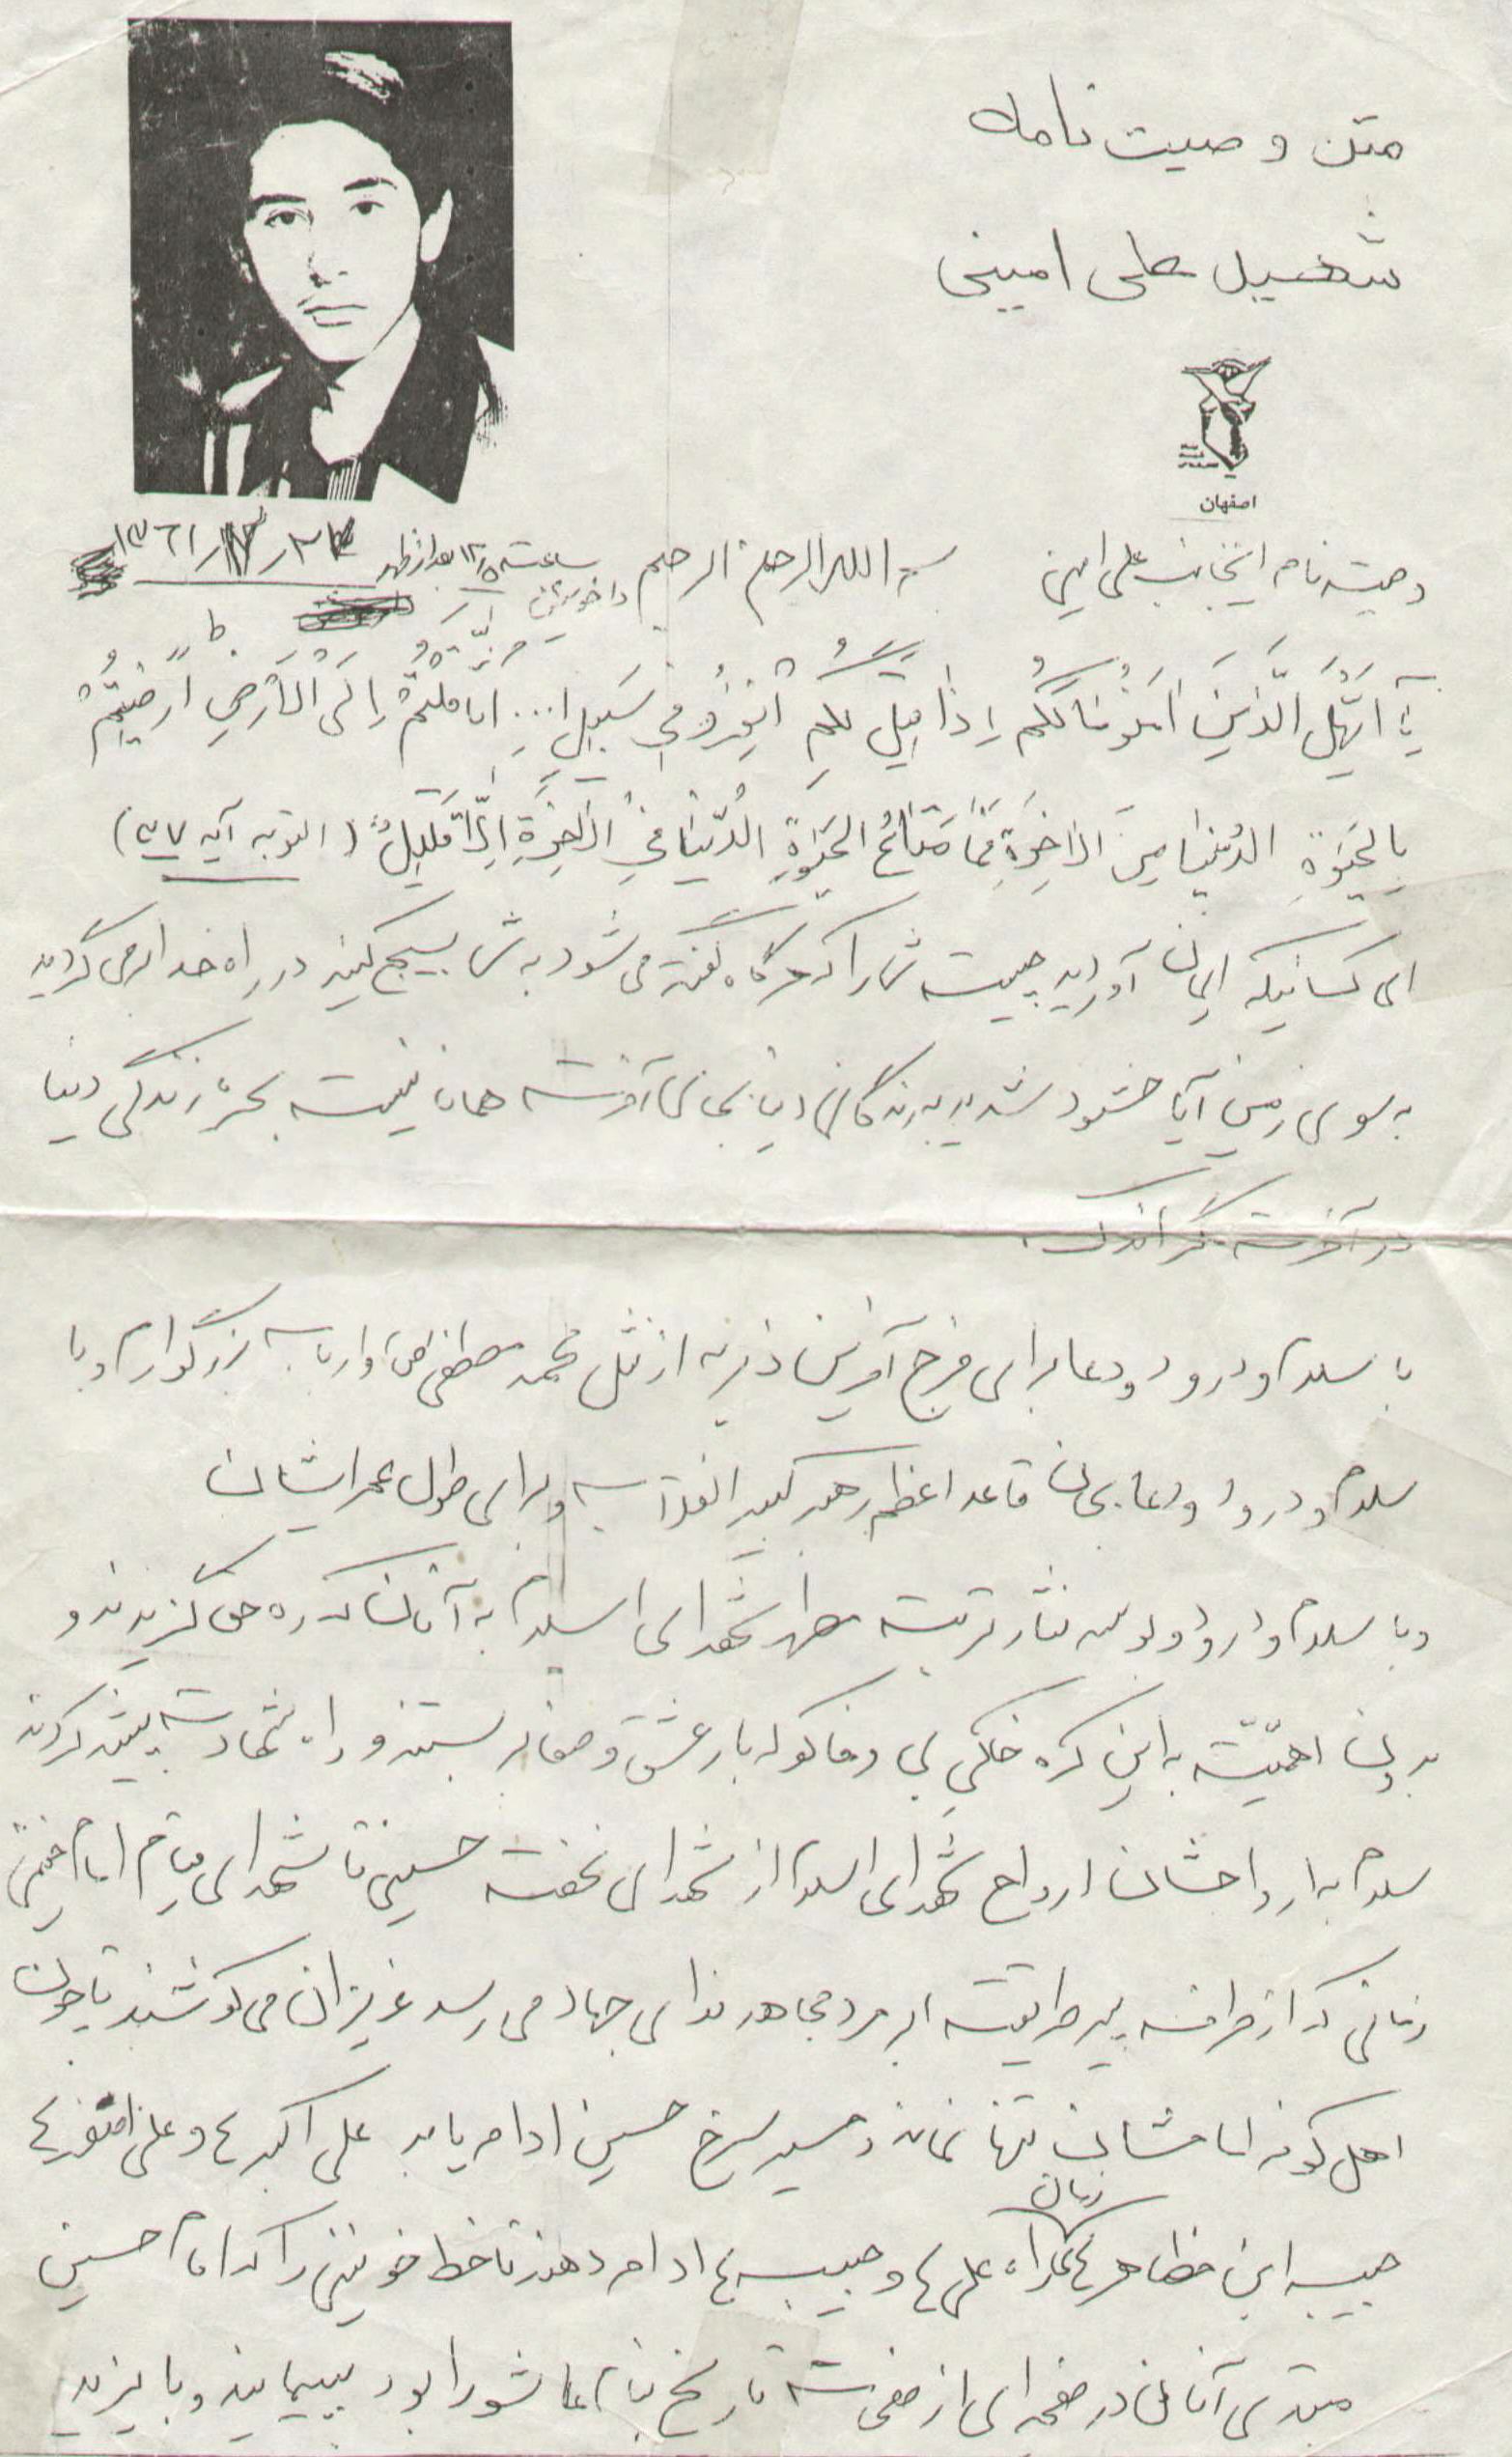 متن وصیت نامه
شهید علی امینی
اصفهان
وصیت نامه اینجانب علی امینی بسم الله الرحمن الرحیم ساعت ۱۲/۵ بعدازظهر ۱۳۶۱
یا اَیُّهَا الَّذینَ آمَنُوا مَالَکُم اِذا قیلَ لَکُمُ انْفِرُوا فی سَبیلِ ا... اثّاقَلتُمْ اِلَی الْاَرْضِ اَرَضیتُمْ
بِالحَیوةِ الدُّنیا مِنَ الاخِرَةِ فَمَا مَتاعُ الحَیوةِ الدُّنیا فِی الْاخِرَةِ اِلّا قَلیلٌ (التوبه آیه ۳۷)
ای کسانیکه ایمان آوردید چیست شما را که هرگاه گفته می شود به شما بسیج کنید در راه خدا گردید
به سوی زمین آیا خشنود شدید به زندگانی دنیا بجای آخرت همانا نیست بجز زندگی دنیا
در آخرت مگر اندک.
با سلام و درود و دعا برای فرج آخرین ذریه از نسل محمد مصطفی (ص) بزرگوارم و با
سلام و درود و دعا بجان قاعد اعظم رهبر کبیر انقلاب و برای طول عمر ایشان
و با سلام و درود و نثار تربت مطهر شهدای اسلام به آنان که ره حق گزیدند و
بدون اهمیّت به این کره خاکی بی وفا کوله بار عشق و صفا بر بستند و راه شهادت پیشه کردند
سلام به ارواحشان ارواح شهدای اسلام از شهدای نهضت حسینی تا شهدای قیام امام خمینی
زمانی که از طرف پیر طریقت ابر مرد مجاهد ندای جهاد می رسد عزیزان می کوشند تا چون
اهل کوفه امامشان تنها نماند و مسیر سرخ حسین ادامه یابد علی اکبر ع و علی اصغر ع
حبیب ابن مظاهر ع زمان راه علی ع و حبیب ع ادامه دهند تا خط خونینی را که امام حسین
مبتدی آنان در صفحه ای از صفحات تاریخ بنام عاشورا بود بپیمایند و با یزید